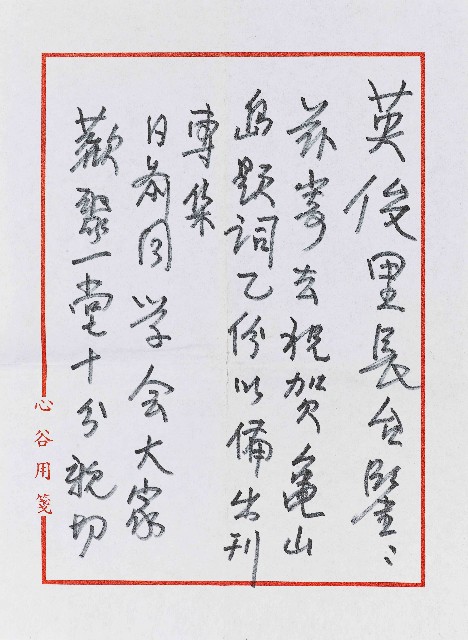 英俊里長台鑒：
茲寄去祝賀龜山
島題詞乙份以備出刊
專集
日前同学会大家
歡聚一堂十分親切
心谷用箋